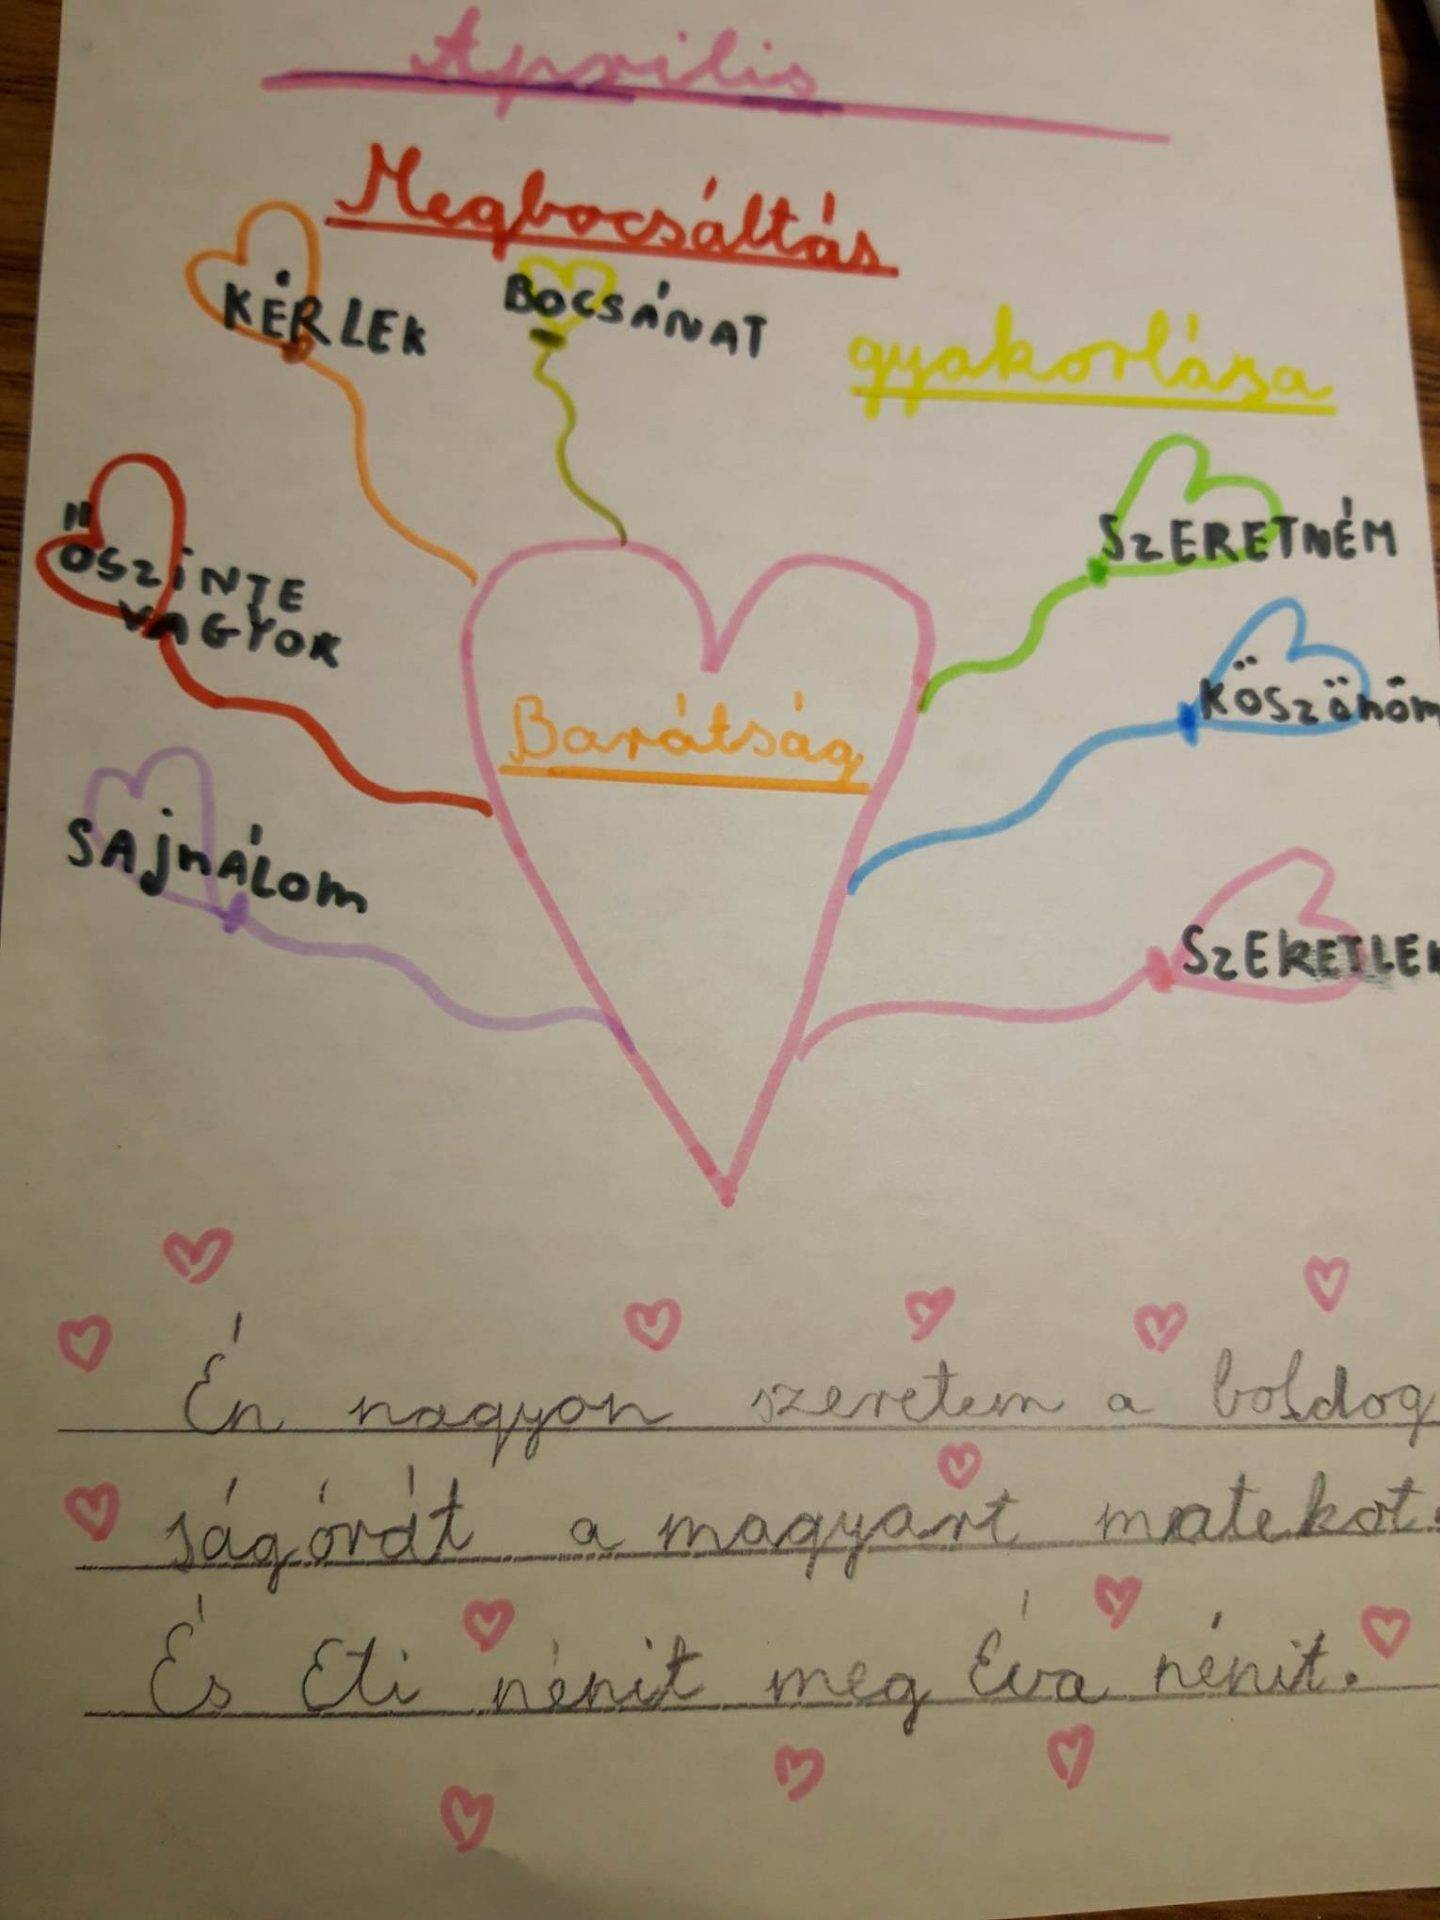 Április
Megbocsáltás
gyakorlása
KÉRLEK
BOCSÁNAT
ŐSZINTE
VAGYOK
SZERETNÉM
KÖSZÖNÖM
Barátság
SAJNÁLOM
SZERETLEK
Én nagyon szeretem a boldog
ságórát a magyart matekot.
És Eti nénit meg Éva nénit.